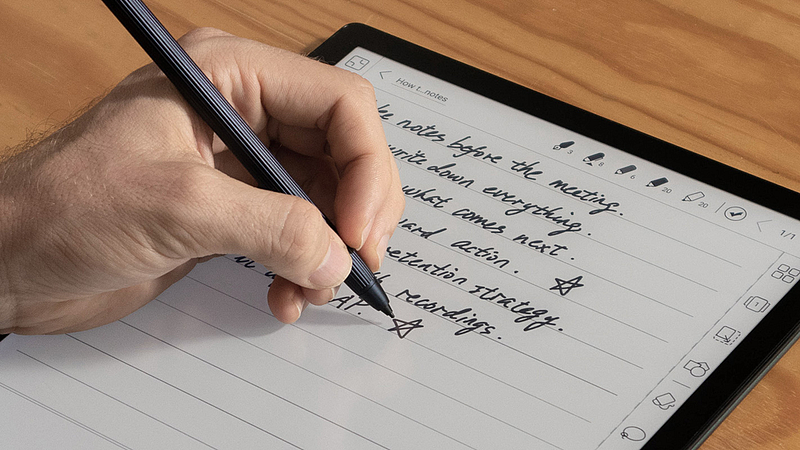 How t...notes
notes before the meeting.
write down everything.
what comes next.
action.
retention strategy.
recordings.
AI.
3 8 6 20 20
1/1